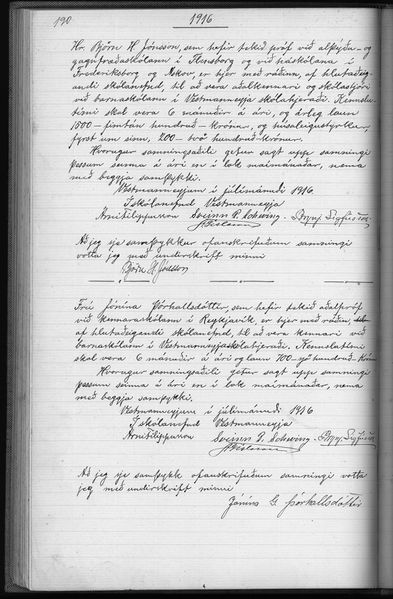 190
1916
Hr. Björn H. Jónsson, sem hefir tekið próf við alþýðu- og
gagnfræðaskólann í Flensborg og við háskólana í
Frederiksborg og Askov, er hjer með ráðinn, af hlutaðeig-
andi skólanefnd, til að vera aðalkennari og skólastjóri
við barnaskólann í Vestmannaeyja skólahjeraði. Kennslu-
tími skal vera 6 mánuðir á ári, og árleg laun
1500 - fimtán hundruð - krónur, og húsaleigustyrkur,
fyrst um sinn, 200 - tvö hundruð krónur.
Hvorugur samningsaðili getur sagt upp samningi
þessum sinna á ári en í lok maímánaðar, nema
með beggja samþykki.
Vestmannaeyjum í júlímánuði 1916.
Í skólanefnd Vestmannaeyja
Árni Filippusson Sveinn P. Scheving Brynj. Sigfússon
Að jeg sje samþykkur ofanskrifuðum samningi
votta jeg með underskrift minni
Björn H. Jónsson
Frú Jónína Þórhallsdóttir, sem hefir tekið aðalpróf
við kennaraskólann í Reykjavík er hjer með ráðin
af hlutaðeigandi skólanefnd, til að vera kennari við
barnaskólann í Vestmannaeyjaskólahjeraði. Kennslutími
skal vera 6 mánuðir á ári og laun 700 - sjö hundruð - krónur
Hvorugur samningsaðili getur sagt upp samningi
þessum sinna á ári en í lok maímánaðar, nema
með beggja samþykki.
Vestmannaeyjum í júlímánuði 1916
Í skólanefnd Vestmannaeyja
Árni Filippusson Sveinn P. Scheving Brynj. Sigfússon
Að jeg sje samþykk ofanskrifuðum samningi votta
jeg með underskrift minni
Jónína G. Þórhallsdóttir